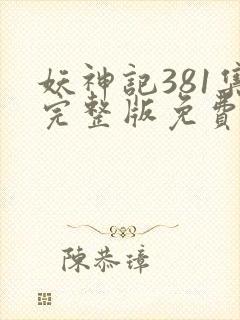 妖神記381集
完整版免費
陳恭璋